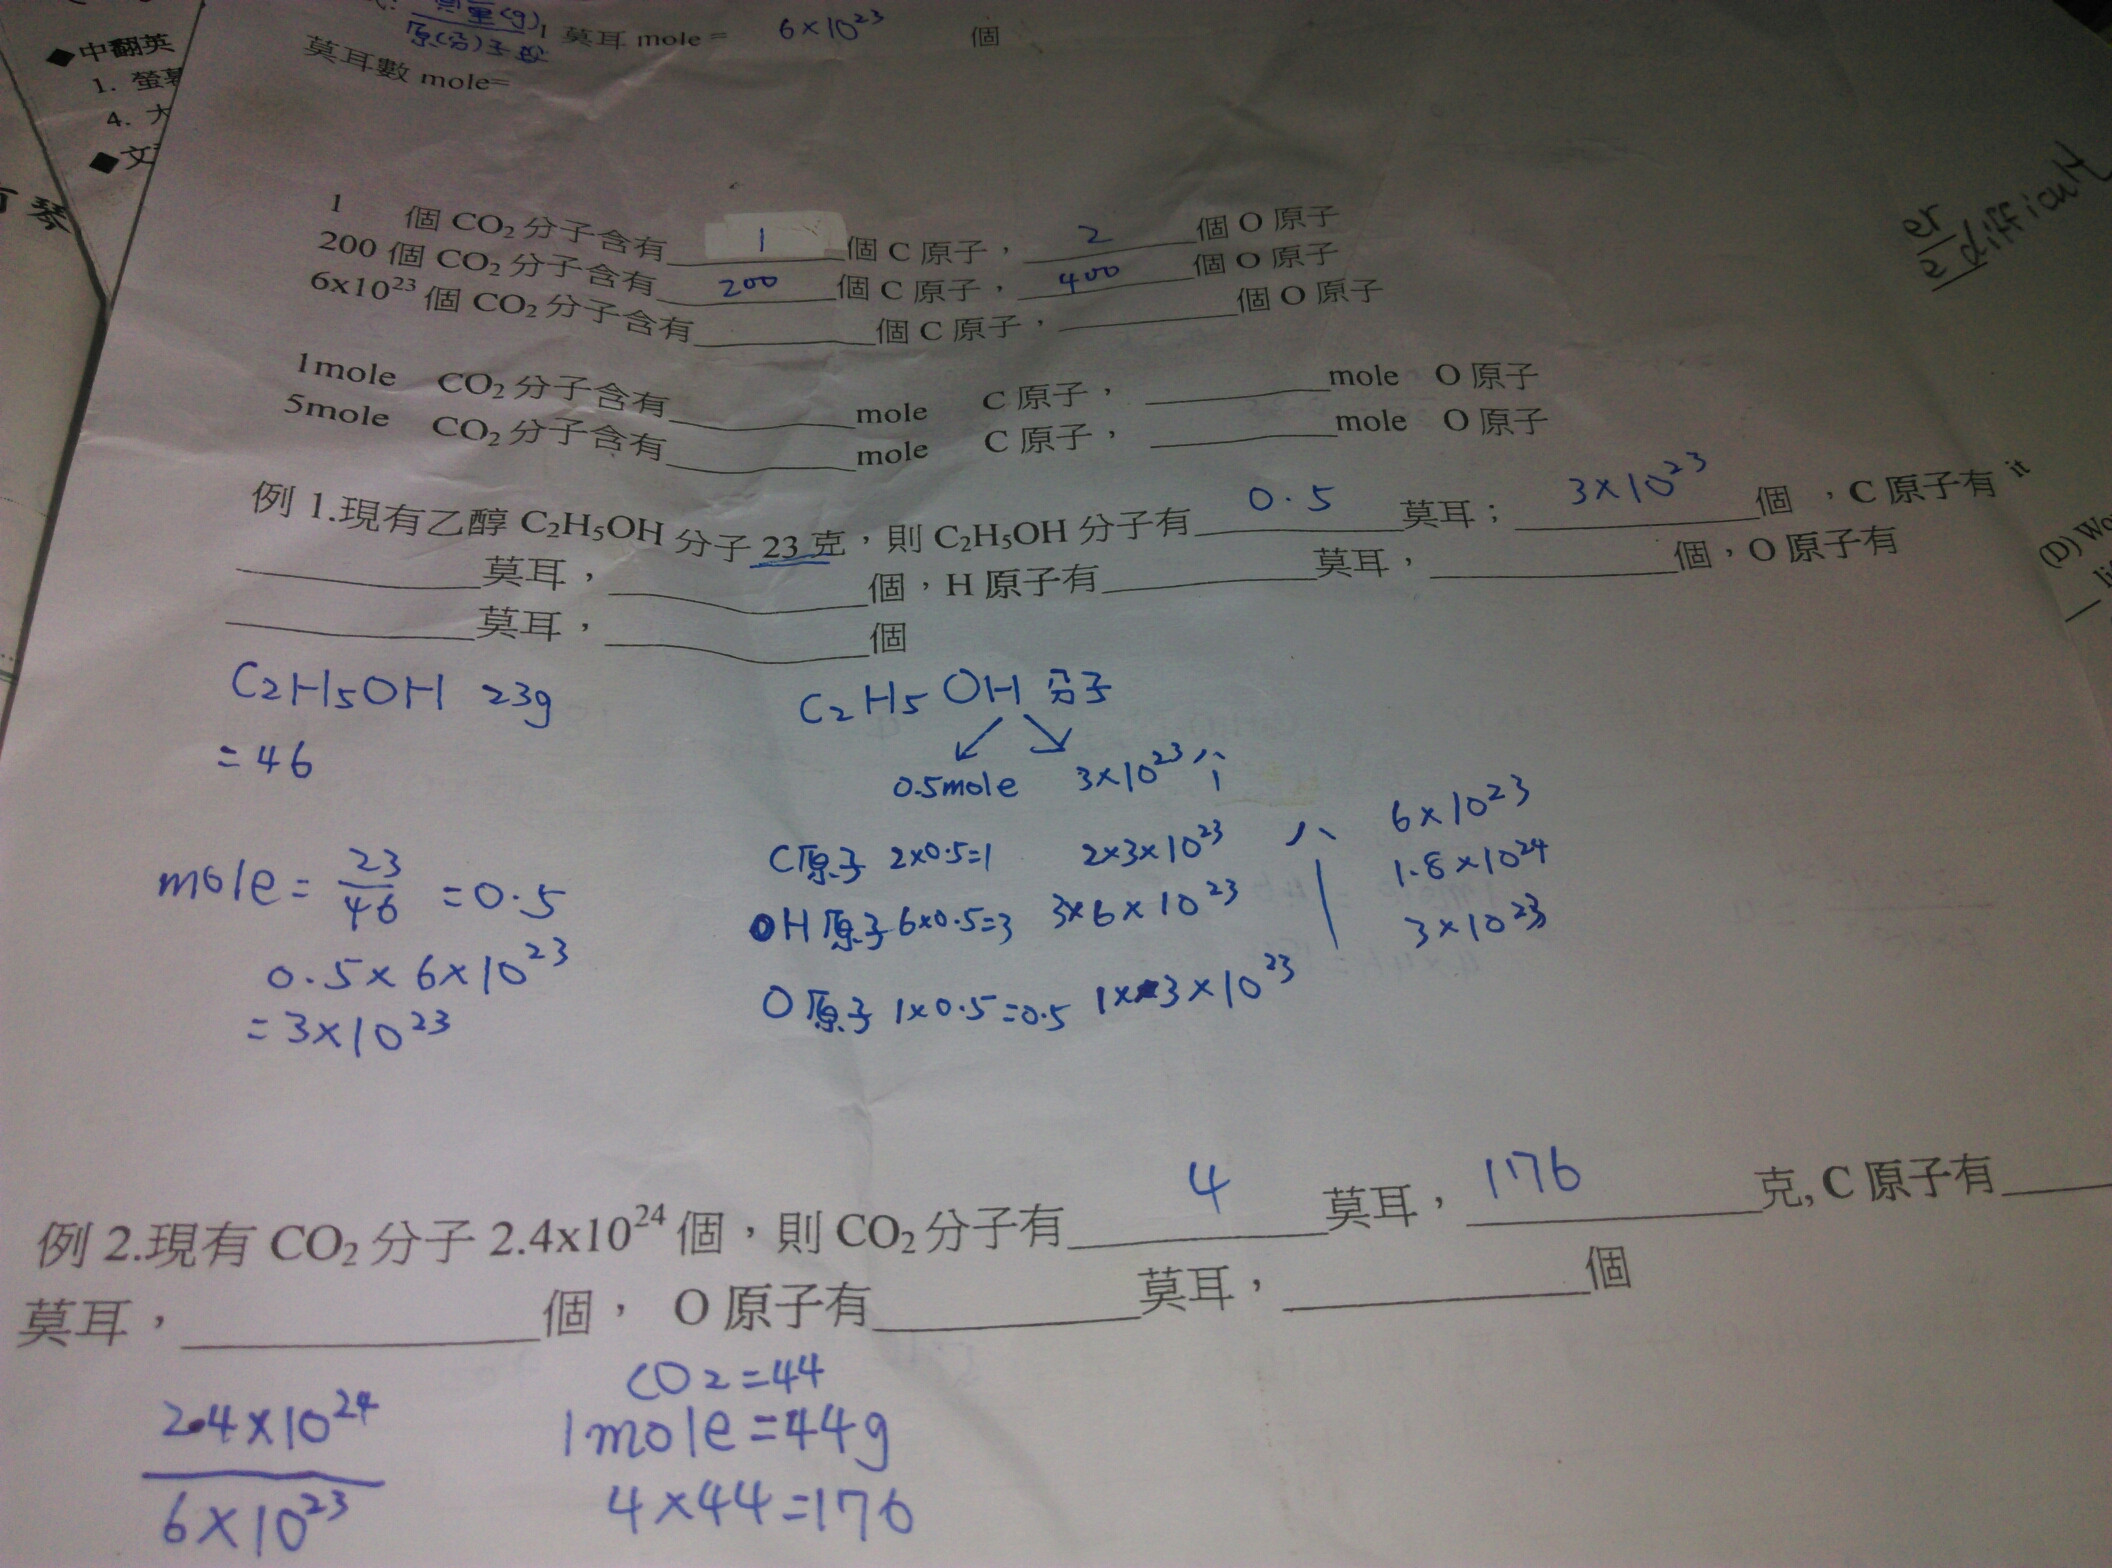 質量(g)
原(分)子量
1 莫耳 mole = 6×10²³ 個
莫耳數 mole=
◆中翻英
1. 螢幕
4. 大
◆文
琴
1 個 CO₂ 分子含有 1 個 C 原子, 2 個 O 原子
200 個 CO₂ 分子含有 200 個 C 原子, 400 個 O 原子
6x10²³ 個 CO₂ 分子含有________個 C 原子,________個 O 原子
1mole CO₂ 分子含有________mole C 原子,________mole O 原子
5mole CO₂ 分子含有________mole C 原子,________mole O 原子
例 1.現有乙醇 C₂H₅OH 分子 23 克,則 C₂H₅OH 分子有 0.5 莫耳; 3×10²³ 個,C 原子有
________莫耳,________個,H 原子有________莫耳,________個,O 原子有
________莫耳,________個
C₂H₅OH 23g
= 46
mole = 23/46 = 0.5
0.5 × 6 × 10²³
= 3×10²³
C₂H₅OH 分子
↙ ↘
0.5mole 3×10²³ 个
C原子 2×0.5=1 2×3×10²³ 个 6×10²³
H原子 6×0.5=3 3×6×10²³ 1.8×10²⁴
O原子 1×0.5=0.5 1×3×10²³ 3×10²³
例 2.現有 CO₂ 分子 2.4x10²⁴ 個,則 CO₂ 分子有 4 莫耳, 176 克, C 原子有____
莫耳,________個, O 原子有________莫耳,________個
2.4×10²⁴
6×10²³
CO₂ = 44
1mole = 44g
4×44=176
difficult
it
(D) Wo